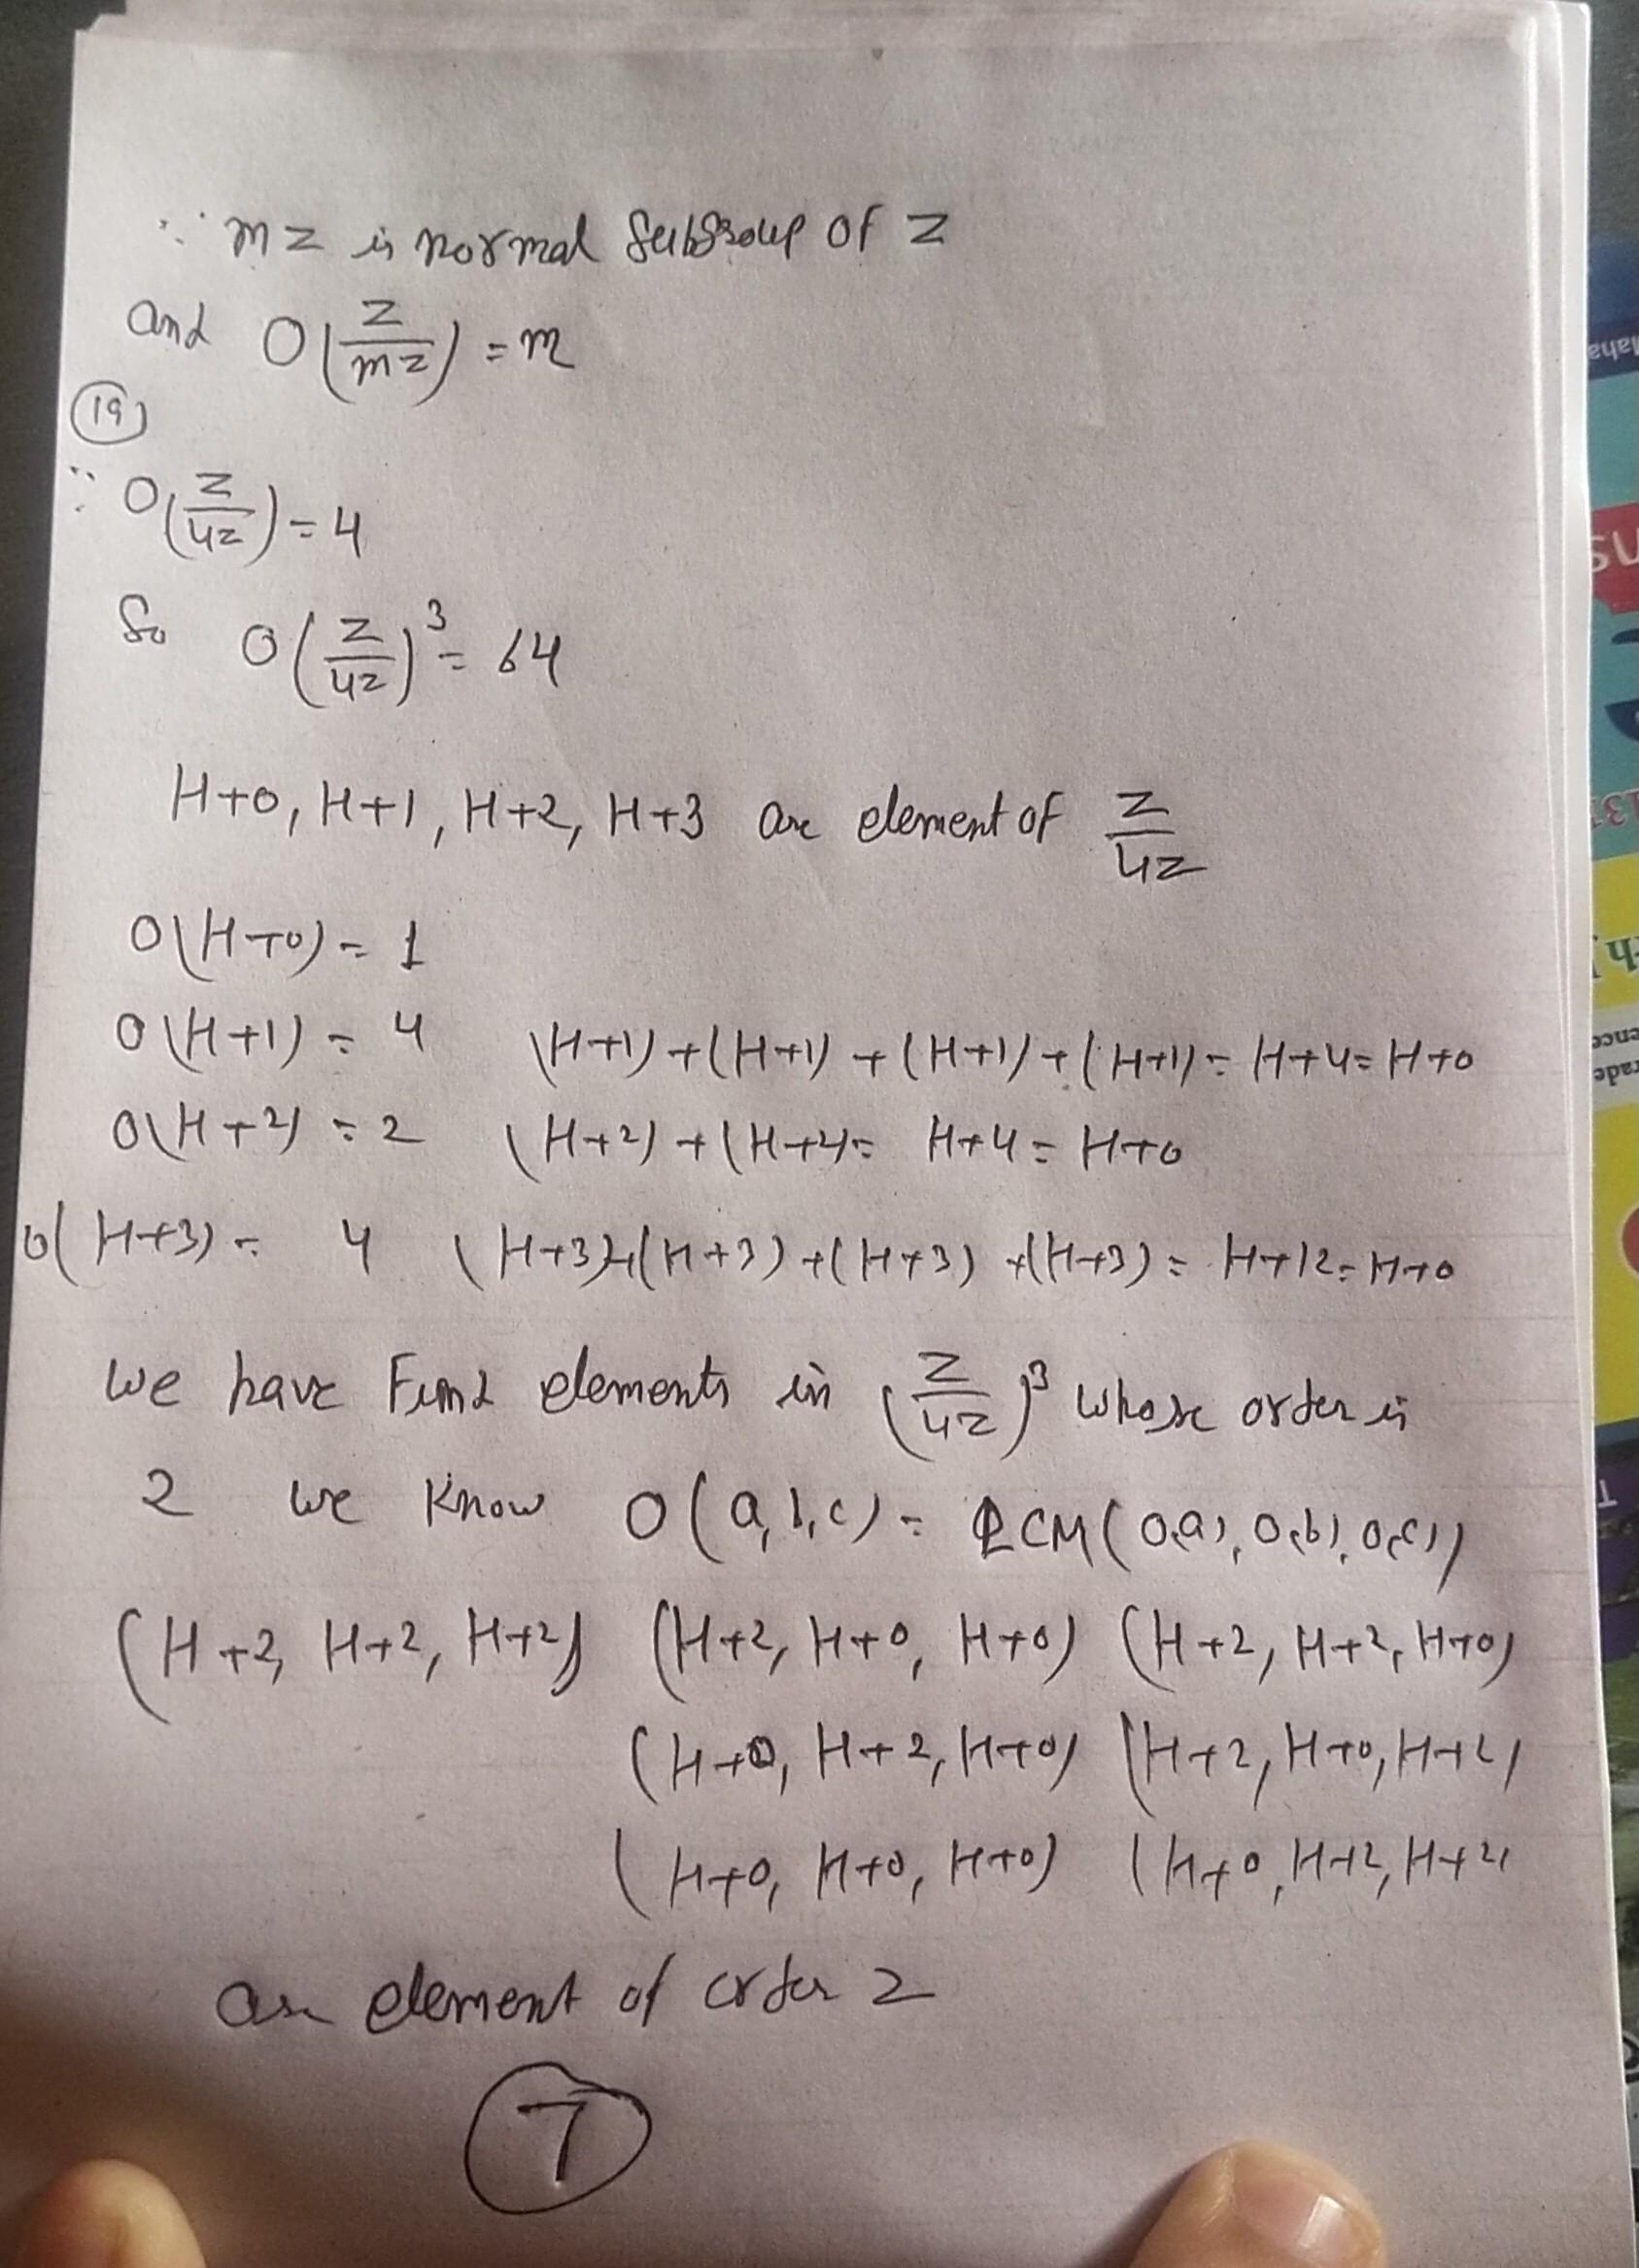 ∵ mz is normal Subgroup of Z
and O(Z/mz) = m
(19)
∵ O(Z/4z) = 4
So O(Z/4z)³ = 64
H+0, H+1, H+2, H+3 are element of Z/4z
O(H+0) = 1
O(H+1) = 4 (H+1)+(H+1)+(H+1)+(H+1) = H+4 = H+0
O(H+2) = 2 (H+2)+(H+2) = H+4 = H+0
O(H+3) = 4 (H+3)+(H+3)+(H+3)+(H+3) = H+12 = H+0
We have Find elements in (Z/4z)³ whose order is
2 we know O(a,b,c) = LCM(O(a), O(b), O(c))
(H+2, H+2, H+2) (H+2, H+0, H+0) (H+2, H+2, H+0)
(H+0, H+2, H+0) (H+2, H+0, H+2)
(H+0, H+0, H+0) (H+0, H+2, H+2)
are element of order 2
7